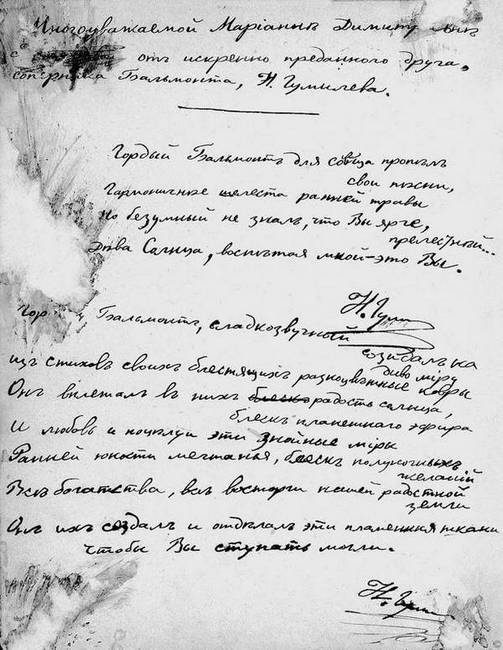 Многоуважаемой Маріаннѣ Димитр
отъ искренно преданного друга,
соперника Бальмонта, Н. Гумилева.
Гордый Бальмонтъ для солнца пропѣлъ
свои пѣсни,
Гармоничнѣе шелеста ранней травы
Но безумный не зналъ, что Вы ярче,
прелестнѣй...
Дѣва Солнца, воспѣтая мной – это Вы.
Н. Гум
Гор Бальмонтъ, сладкозвучный
созидалъ на
диво міру
изъ стиховъ своихъ блестящихъ разноцвѣтные ковры
Онъ вплеталъ въ нихъ радость солнца,
блескъ планетнаго эфира
И любовь и поцѣлуи эти знойные міры
Ранней юности мечтанья, блескъ полуночныхъ
желаній
Всѣ богатства, всѣ восторги нашей радостной
земли
Онъ ихъ создалъ и отдѣлалъ эти пламенныя ткани
Чтобы Вы ступать могли.
Н. Гум